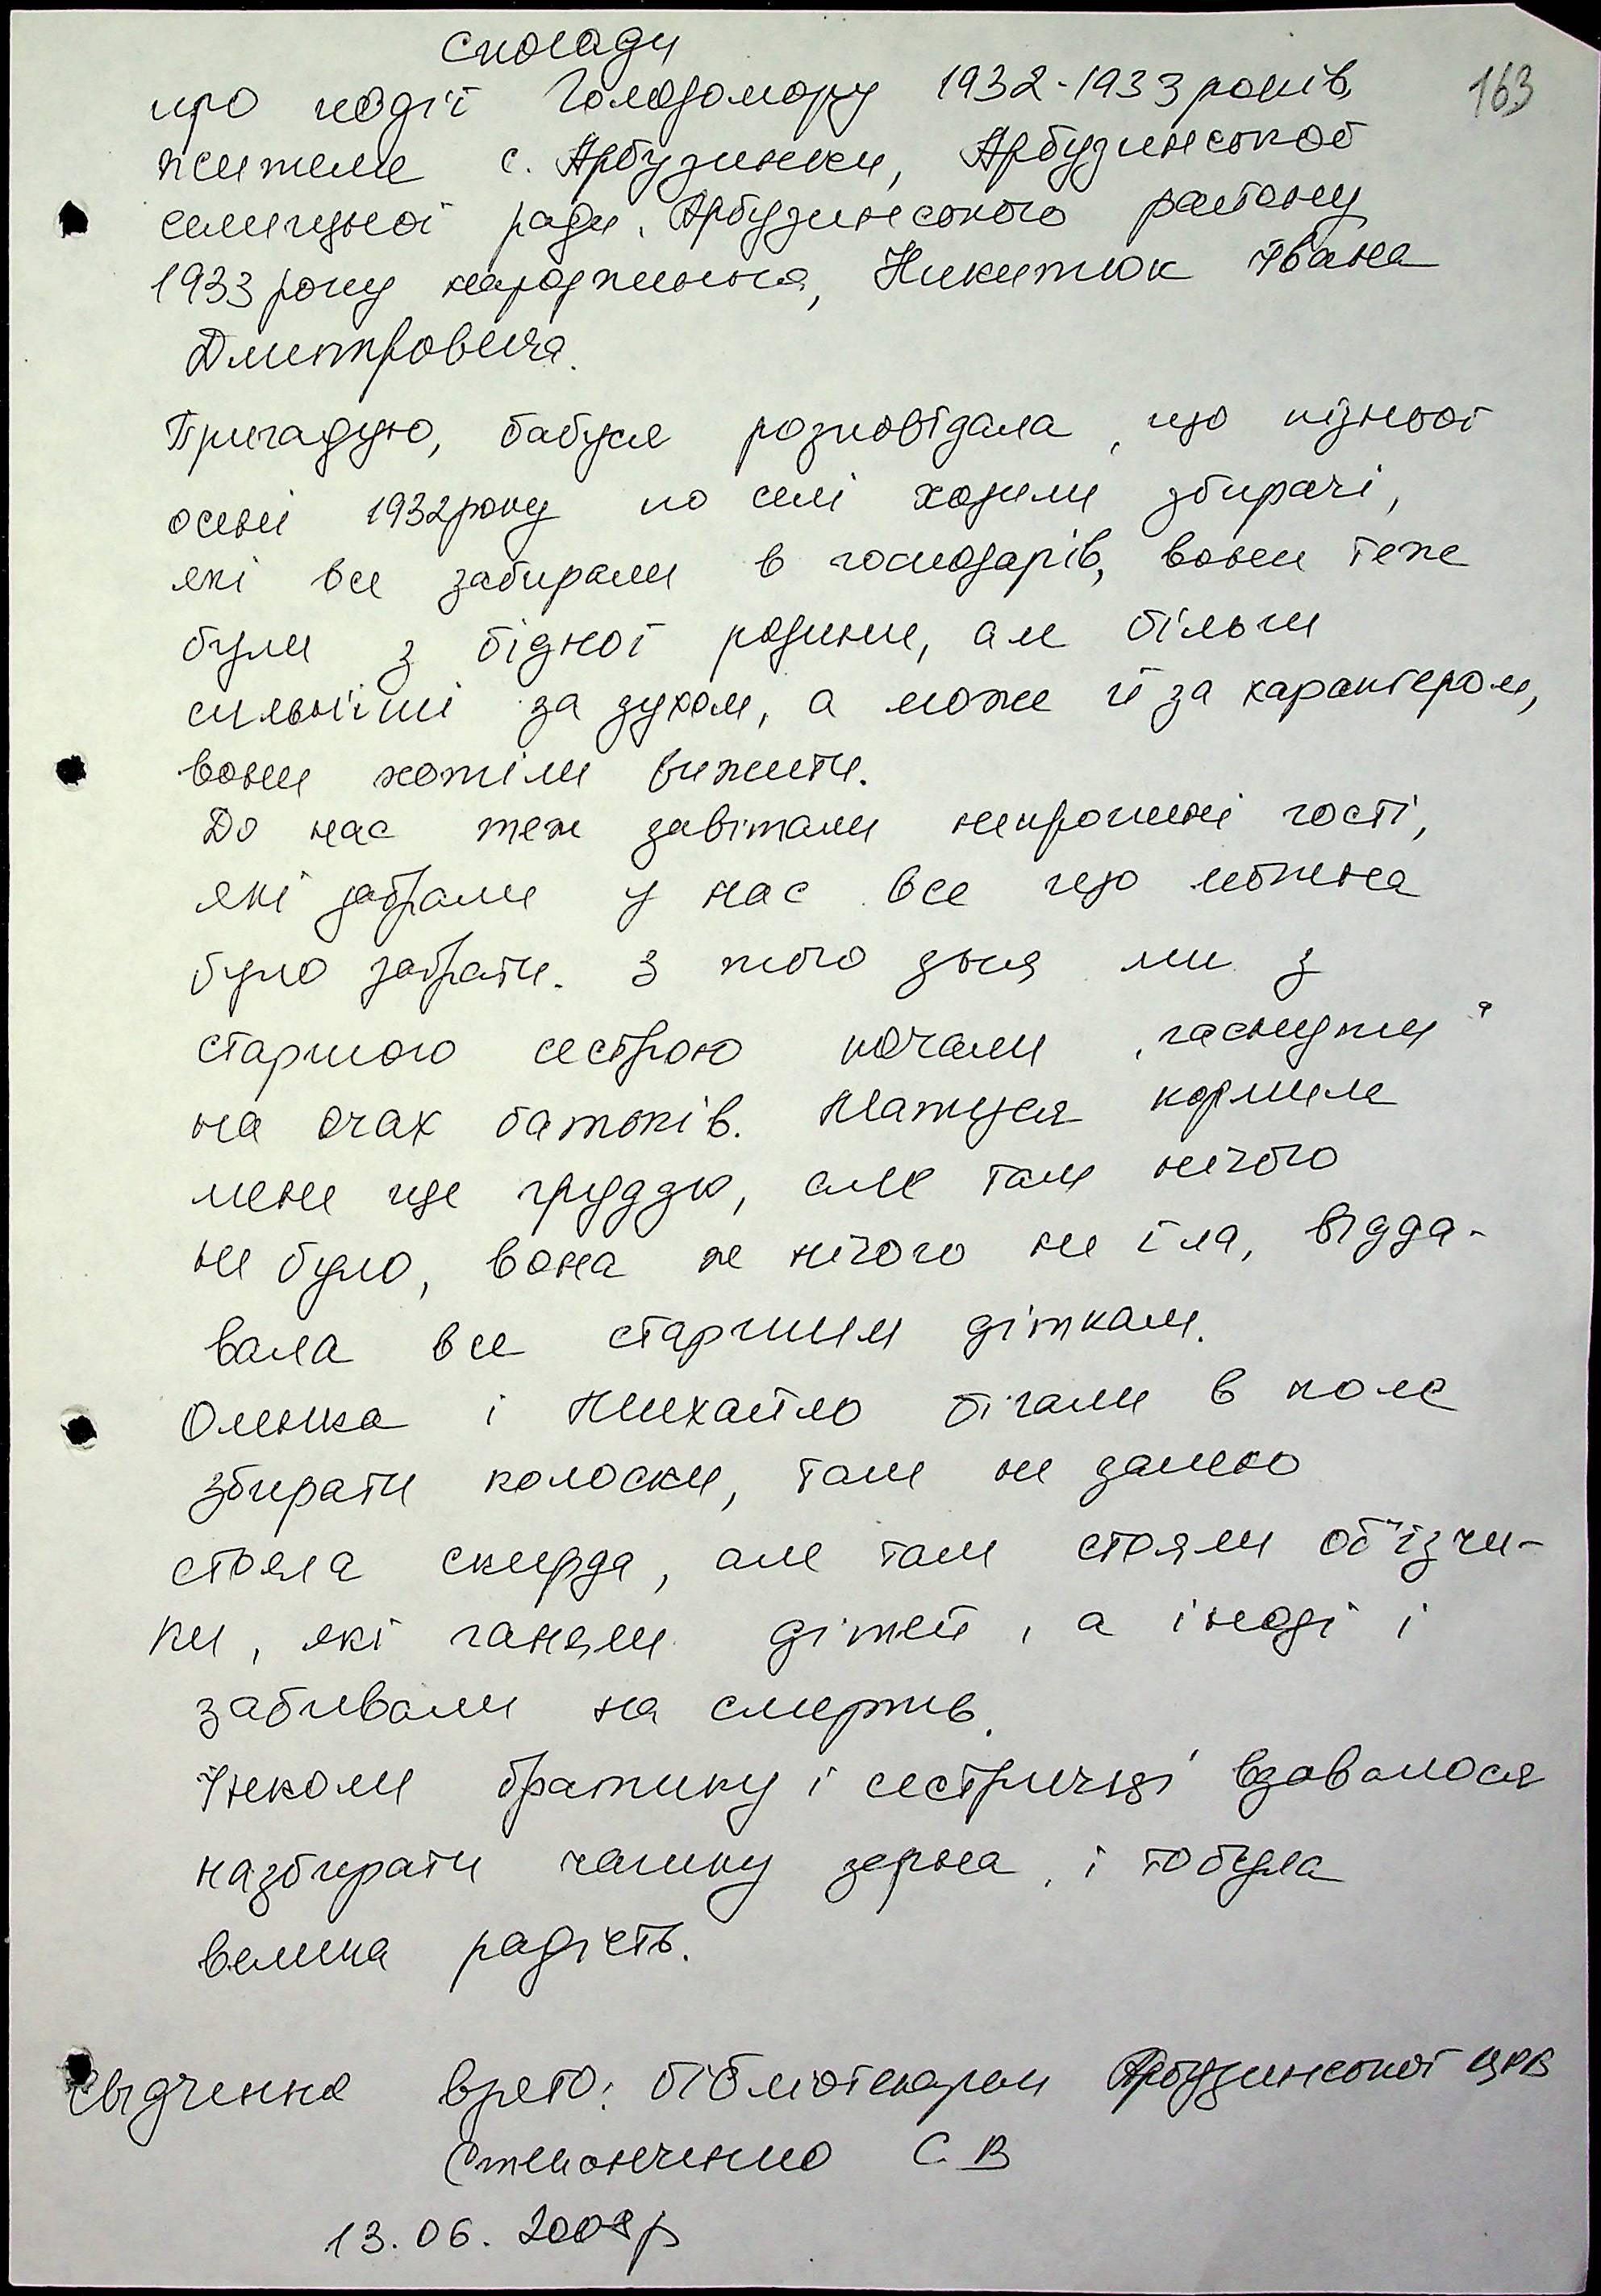 Спогади
163
про події Голодомору 1932-1933 років,
жителя с. Арбузинки, Арбузинської
селищної ради, Арбузинського району
1933 року народження, Никитюк Івана
Дмитровича.
Пригадую, бабуся розповідала, що пізньої
осені 1932 року по селі ходили збирачі,
які все забирали в господарів, вони теж
були з бідної родини, але більш
сильніші за духом, а може й за характером,
вони хотіли вижити.
До нас теж завітали непрошені гості,
які забрали у нас все що можна
було забрати. З того дня ми з
старшою сестрою почали "гаснути"
на очах батьків. Матуся кормила
мене ще груддю, але там нічого
не було, вона ж нічого не їла, відда-
вала все старшим діткам.
Оленка і Михайло бігали в поле
збирати колоски, там не далеко
стояла скирда, але там стояли об'їзчи-
ки, які ганяли дітей, а іноді і
забивали на смерть.
Інколи братику і сестричці вдавалося
назбирати чашку зерна, і то була
велика радість.
Свідчення взято: бібліотекарем Арбузинської ЦРБ
Степанченко С. В
13.06. 2008р